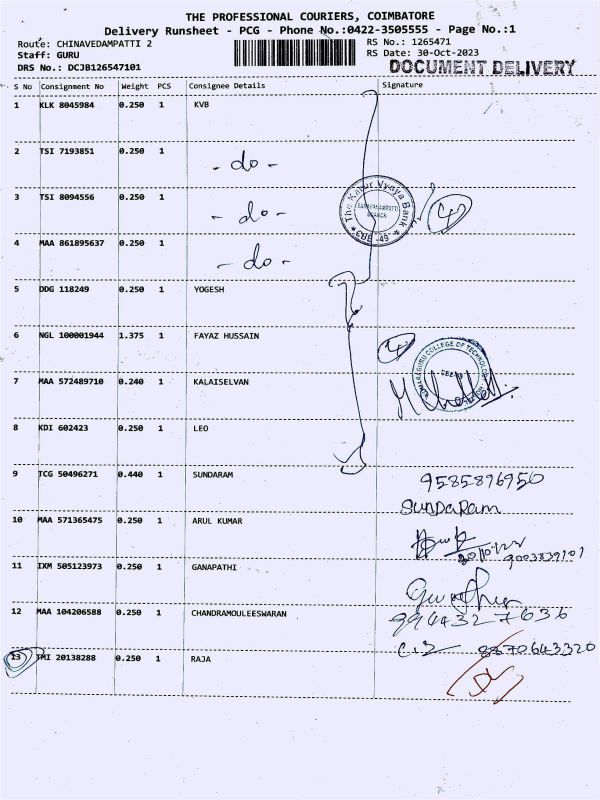 THE PROFESSIONAL COURIERS, COIMBATORE
Delivery Runsheet - PCG - Phone No.:0422-3505555 - Page No.:1
Route: CHINAVEDAMPATTI 2 RS No.: 1265471
Staff: GURU RS Date: 30-Oct-2023
DRS No.: DCJB126547101 DOCUMENT DELIVERY
S No Consignment No Weight PCS Consignee Details Signature
1 KLK 8045984 0.250 1 KVB
2 TSI 7193851 0.250 1 - do -
3 TSI 8094556 0.250 1 - do -
The Karur Vysya Bank
BRANCH
4
4 MAA 861895637 0.250 1 - do -
5 DDG 118249 0.250 1 YOGESH
6 NGL 100001944 1.375 1 FAYAZ HUSSAIN
4
COLLEGE OF TECHNOLOGY
7 MAA 572489710 0.240 1 KALAISELVAN
8 KDI 602423 0.250 1 LEO
9 TCG 50496271 0.440 1 SUNDARAM 9585896950
SUNDARAM
10 MAA 571365475 0.250 1 ARUL KUMAR
9003839101
11 IXM 505123973 0.250 1 GANAPATHI
12 MAA 104206588 0.250 1 CHANDRAMOULEESWARAN 9944327636
13 TMI 20138288 0.250 1 RAJA 8870643320